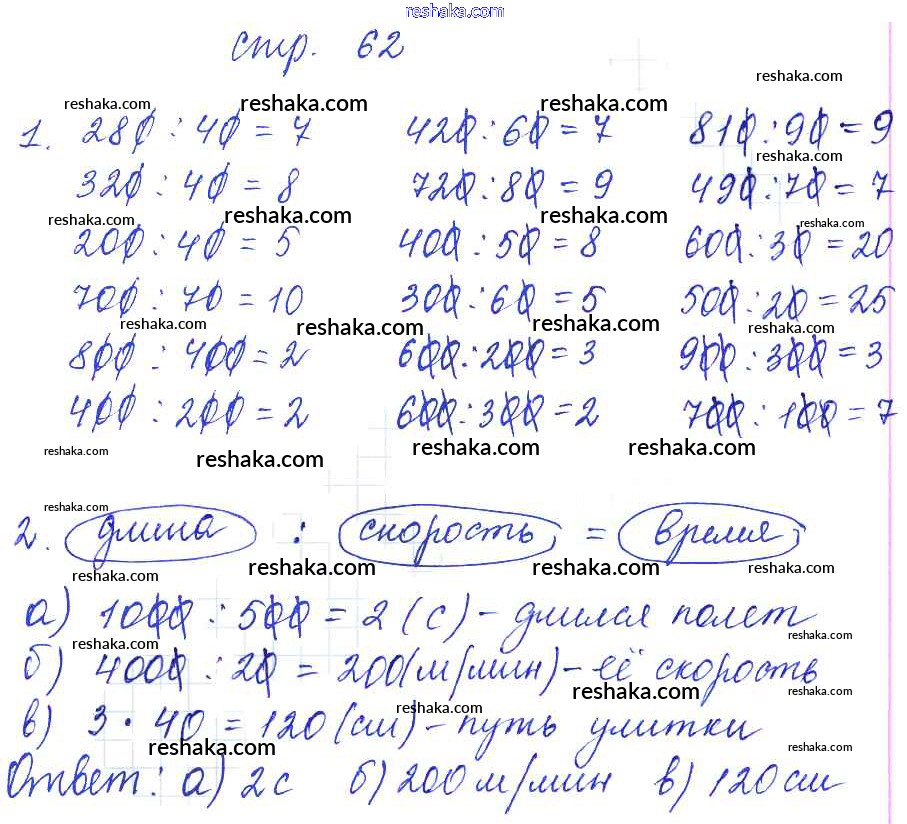 reshaka.com
стр. 62
reshaka.com
reshaka.com reshaka.com reshaka.com
1. 280 : 40 = 7 420 : 60 = 7 810 : 90 = 9
reshaka.com
320 : 40 = 8 720 : 80 = 9 490 : 70 = 7
reshaka.com reshaka.com reshaka.com reshaka.com
200 : 40 = 5 400 : 50 = 8 600 : 30 = 20
700 : 70 = 10 300 : 60 = 5 500 : 20 = 25
reshaka.com reshaka.com reshaka.com reshaka.com
800 : 400 = 2 600 : 200 = 3 900 : 300 = 3
400 : 200 = 2 600 : 300 = 2 700 : 100 = 7
reshaka.com reshaka.com reshaka.com reshaka.com
reshaka.com reshaka.com
2. длина : скорость = время
reshaka.com reshaka.com reshaka.com
reshaka.com
а) 1000 : 500 = 2 (с) - длился полет
reshaka.com reshaka.com
б) 4000 : 20 = 200 (м/мин) - её скорость
reshaka.com reshaka.com reshaka.com
в) 3 · 40 = 120 (см) - путь улитки
reshaka.com reshaka.com
Ответ: а) 2 с б) 200 м/мин в) 120 см